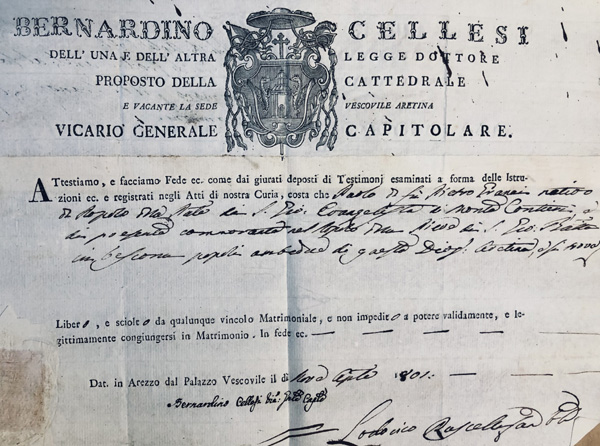 BERNARDINO CELLESI
DELL' UNA E DELL' ALTRA LEGGE DOTTORE
PROPOSTO DELLA CATTEDRALE
E VACANTE LA SEDE VESCOVILE ARETINA
VICARIO GENERALE CAPITOLARE.
Attestiamo, e facciamo Fede ec. come dai giurati deposti di Testimonj esaminati a forma delle Istru-
zioni ec. e registrati negli Atti di nostra Curia, costa che Paolo di fu Pietro nativo
di S. Gio. Evangelista di Monte
di presente commorante nel S. Gio. Batta
in popoli ambedue di questa Dioç. Aretina
Libero, e sciolto da qualunque vincolo Matrimoniale, e non impedito a potere validamente, e le-
gittimamente congiungersi in Matrimonio. In fede ec.
Dat. in Arezzo dal Palazzo Vescovile il dì 1801.
Bernardino Cellesi
Lodovico